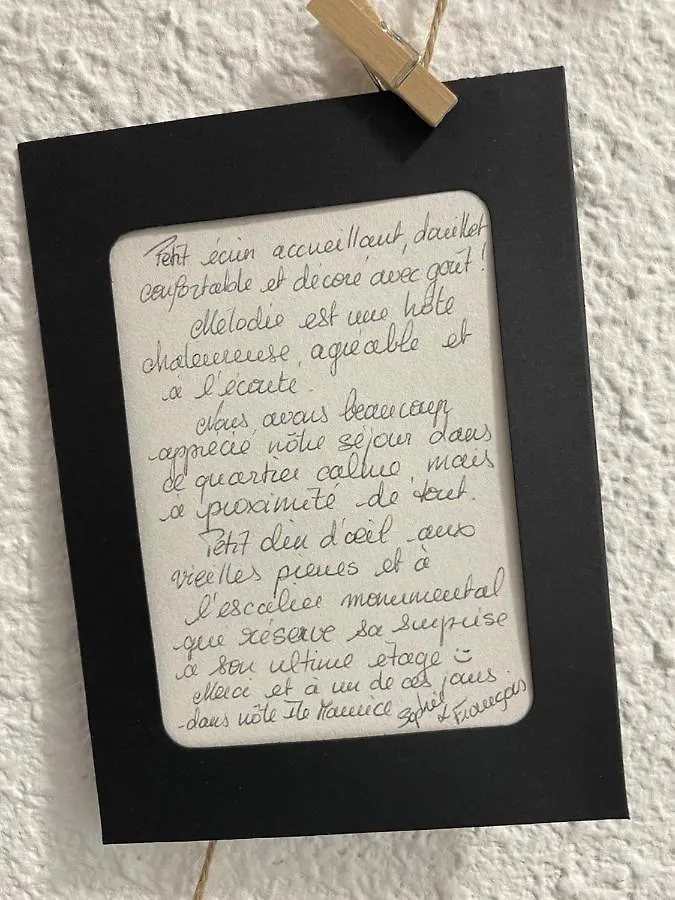 Petit écrin accueillant, douillet
confortable et décoré avec goût !
Mélodie est une hôte
chaleureuse, agréable et
à l'écoute.
Nous avons beaucoup
apprécié nôtre séjour dans
ce quartier calme, mais
à proximité de tout.
Petit clin d'œil aux
vieilles pierres et à
l'escalier monumental
qui réserve sa surprise
à son ultime étage
Merci et à un de ces jours
dans nôtre Ile Maurice
& François